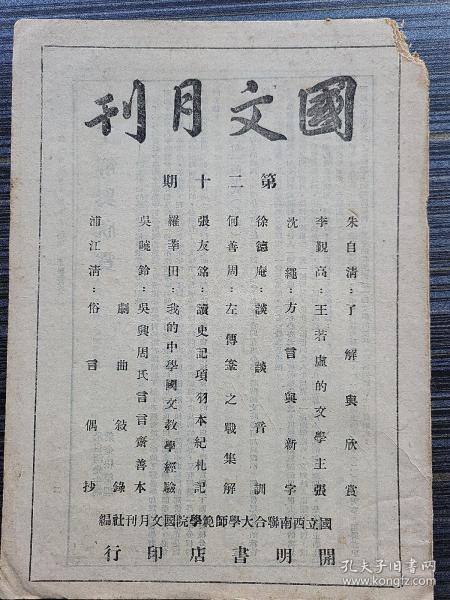 國文月刊
第二十期
朱自清：了解與欣賞
李觀高：王若虛的文學主張
沈　繩：方言與新字
徐德庵：談談音訓
何善周：左傳鞌之戰集解
張友銘：讀史記項羽本紀札記
羅莘田：我的中學國文教學經驗
吳曉鈴：吳興周氏言言齋善本
劇曲敍錄
浦江清：俗言偶抄
國立西南聯合大學師範學院國文月刊社編
開明書店印行
孔夫子旧书网
book.kongfz.com